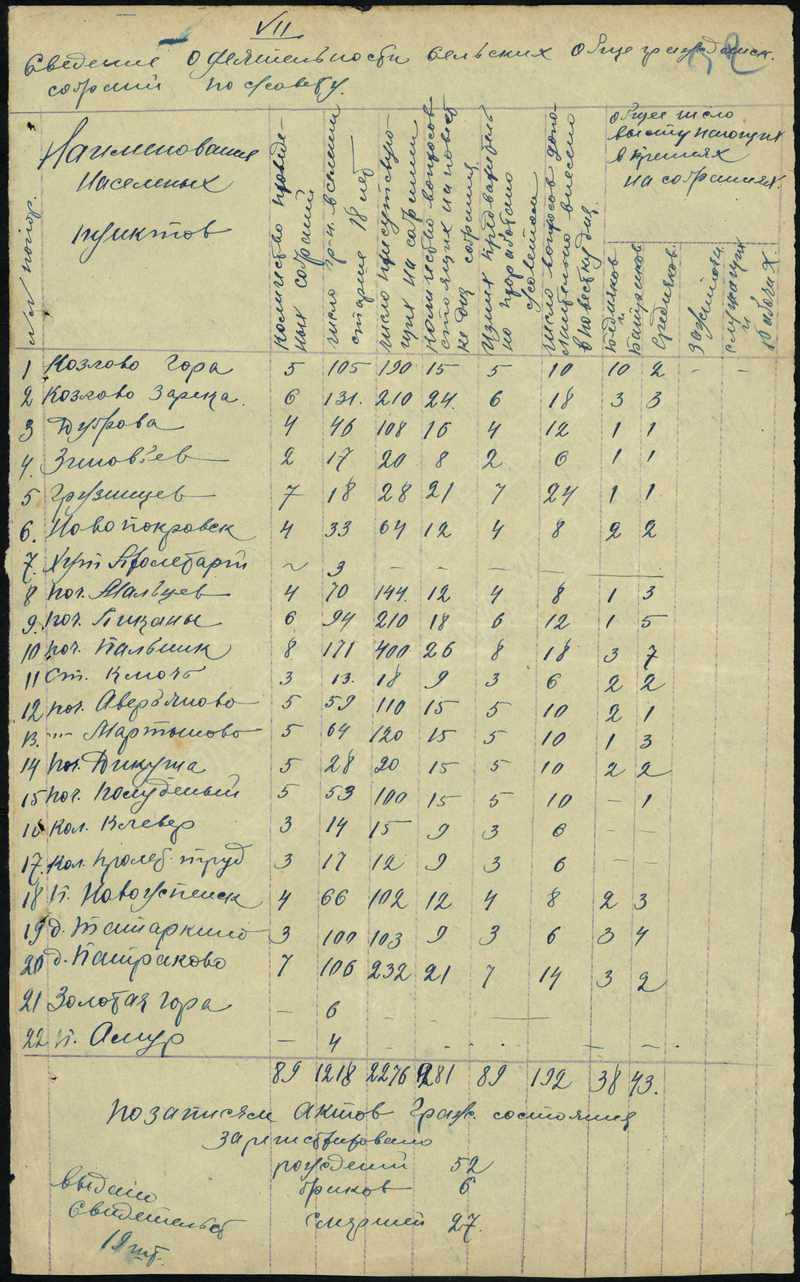 VII
Сведение о деятельности сельских общегражданск.
собраний по с/совету.
№№ попор.
Наименование
населеных
пунктов
количество проведе-
ных собраний
число гр-н. в селении
старше 18 лет
число присутствую-
щих на собрании
количество вопросов
стоящих на повест
ке дня собрания
Из них предваритель
но проработано
советом
число вопросов допо-
лнительно внесено
в повестку дня
общее число
выступающих
в прениях
на собраниях
Бедняков
и
Батраков
Средняков
Зажиточн.
служащих
и
Рабочих
1 Козлово Гора 5 105 190 15 5 10 10 2 - -
2 Козлово Зарека 6 131. 210 24. 6 18 3 3
3 Дуброва 4 46 108 16 4 12 1 1
4. Зиновьев 2 17 20 8 2 6 1 1
5 Грузинцев 7 18 28 21 7 24 1 1
6. Новопокровск 4 33 64 12 4 8 2 2
7. Хут Пролетарий ~ 3 - - - - —
8 поч. Мальцев 4 70 144. 12 4 8 1 3
9. поч. Пизаны 6 94 210 18 6 12 1 5
10 поч. Пальник 8 171 400 26 8 18 3 7
11 ст. Ключь 3 13. 18 9 3 6 2 2
12 поч. Аверьяново 5 59 110 15 5 10 2 1
13. -"- Мартыново 5 64 120 15 5 10 1 3
14 поч. Дикуша 5 28 20 15 5 10 2 2
15 поч. Полуденый 5 53 100 15 5 10 - 1
16 кол. Клевер 3 14 15 9 3 6 - -
17. кол. пролет. труд 3 17 12 9 3 6 - -
18 п. Новоуспенск 4 66 102 12 4 8 2 3
19 д. Татаркино 3 100 103 9 3 6 3 4
20 д. Патраково 7 106 232 21 7 14 3 2
21 Золотая гора - 6 - - —
22 п. Амур - 4 - - - - - -
89 1218 2276 281 89 192 38 43.
По записям актов Граж. состояния
зарегистрировано
рождений 52
браков 6
смертей 27.
Выдано
свидетельств
19 шт.